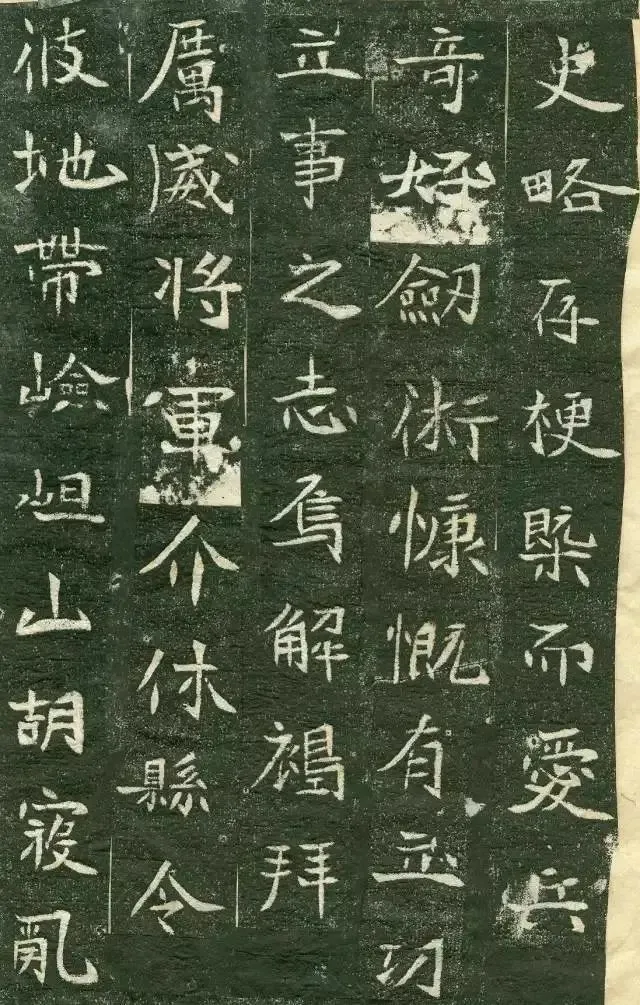 史略存梗槩而愛兵
奇好劒術慷慨有立功
立事之志焉解褐拜
厲威將軍介休縣令
彼地帶嶮岨山胡寇亂